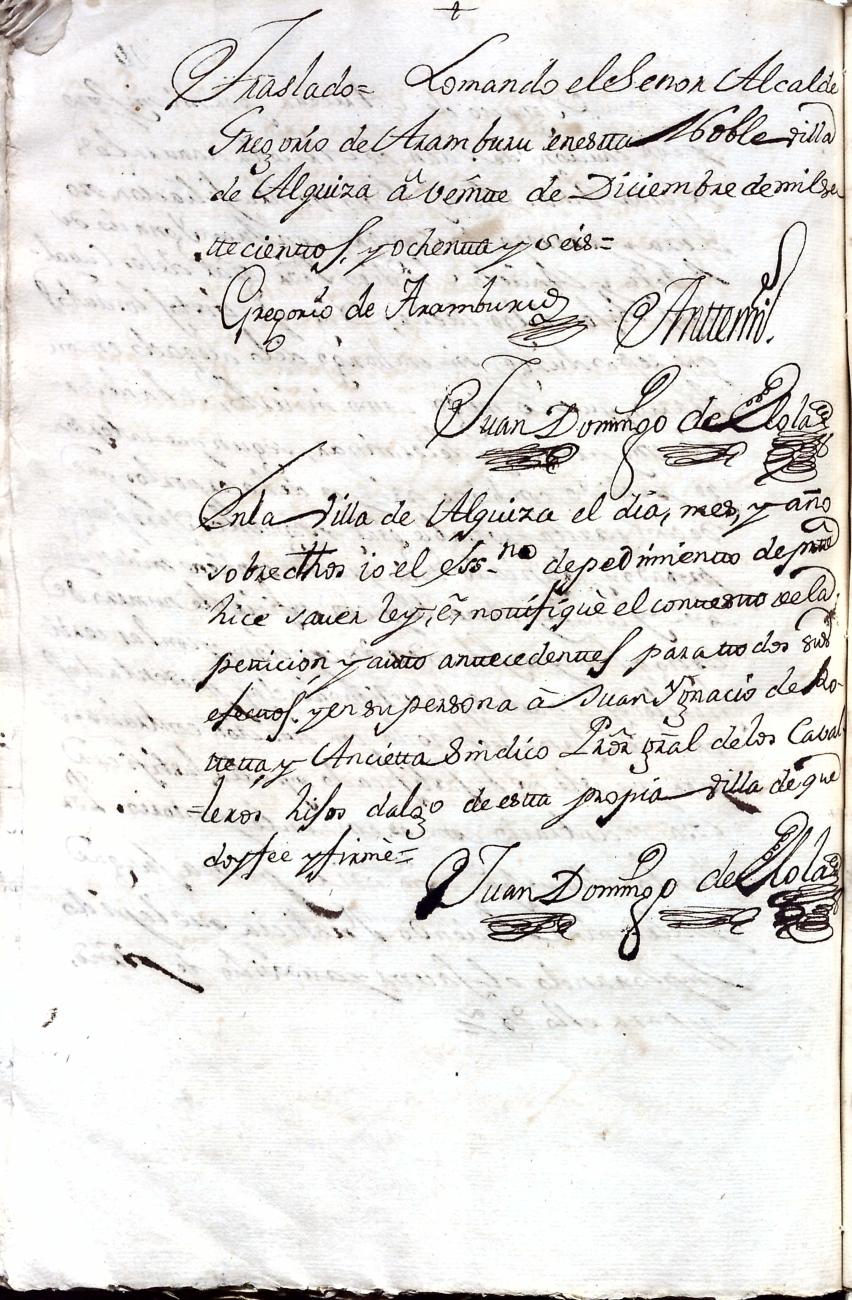 Traslado= Lo mando el Señor Alcalde
Gregorio de Aramburu en estta Noble villa
de Alquiza â veintte de Diciembre de mil se
ttecienttos, y ochentta y seis.=
Gregorio de Aramburu
Anttemi.
Juan Domingo de Ollola
En la villa de Alquiza el dia, mes, y año
sobredhos io el Ess.no de pedimientto de partte
hice saver ley, ê, nottifiquè el contextto de la
petticion y autto anttecedenttes para ttodos sus
efecttos, y en su persona â Juan Ygnacio de Ro-
ttetta y Ancietta Sindico Prõr grãl de los Caval
=leros hijos dalgo de estta propia villa de que
doy fee y firmè=
Juan Domingo de Ollola